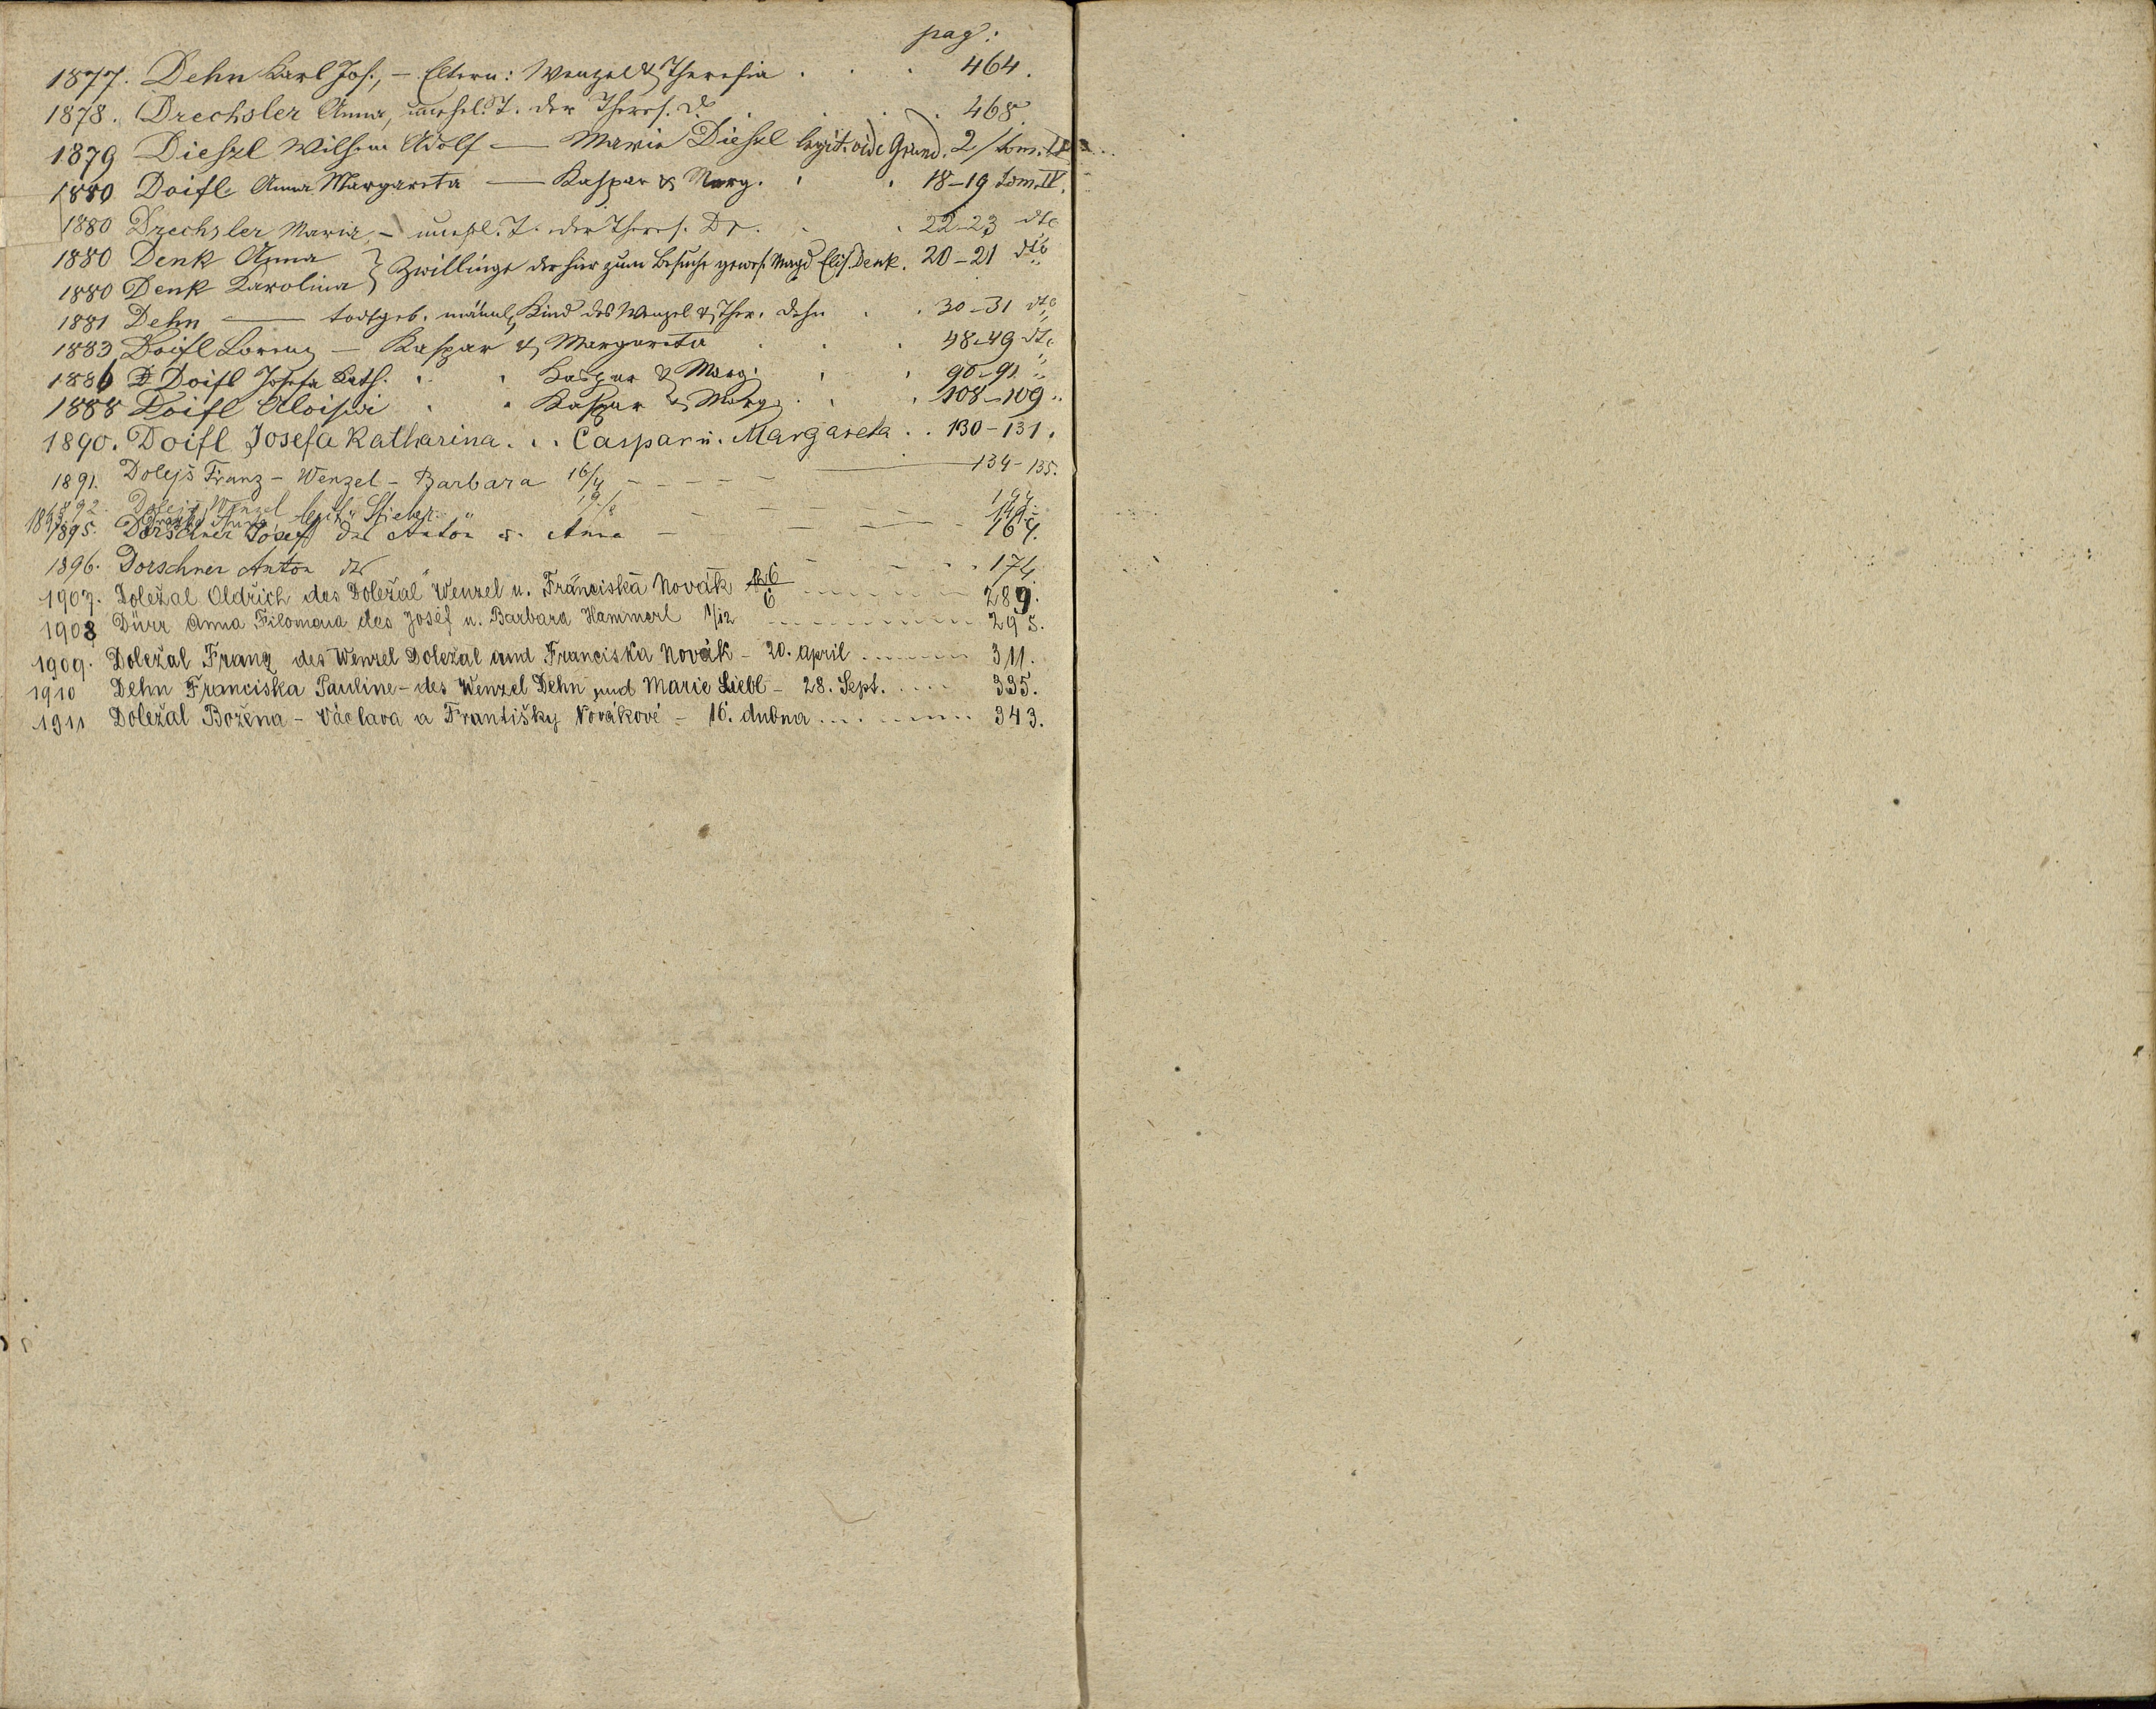 pag:
1877. Dehn Karl Jos., – Eltern: Wenzel & Theresia . . . 464.
1878. Drechsler Anna, unehel. T. der Theres. D. . . . 468.
1879 Dieszl Wilhem Adolf — Marie Dieszl legit. vide Grund. 2/tom. IV
1880 Doifl Anna Margareta — Kaspar & Marg. . . 18–19 Tom. IV.
1880 Drechsler Maria, – unehl. T. der Theres. Dr. . . 22–23 dto
1880 Denk Anna } Zwillinge der hier zum Besuche gewes. Magd Elis. Denk. 20–21 dto
1880 Denk Karolina
1881 Dehn — todtgeb. männl. Kind des Wenzel & Ther. Dehn . . 30–31 dto
1883 Doifl Lorenz — Kaspar & Margareta . . . 48–49 dto
1886 Doifl Josefa Kath. . . Kaspar & Marg. . . 90–91 "
1888 Doifl Aloisia . . Kaspar & Marg. . . 108–109 "
1890. Doifl Josefa Katharina . . . Caspar u. Margareta . . 130–131.
1891. Dolejš Franz – Wenzel – Barbara 16/4 – – – – 134–135.
1892. Dolejš Wenzel
1895. Dorschner Josef des Anton u. Anna – – – 164.
1896. Dorschner Anton dto " – – – 174.
1907. Doležal Oldřich des Doležal Wenzel u. Franciska Novák 6/6 ........ 289.
1908 Dürr Anna Filomena des Josef u. Barbara Hammerl 1/12 ........ 295.
1909. Doležal Franz des Wenzel Doležal und Franciska Novák – 20. April ........ 311.
1910 Dehn Franciska Pauline – des Wenzel Dehn und Marie Liebl – 28. Sept. ..... 335.
1911 Doležal Božena – Václava a Františky Novákové – 16. dubna ........ 343.